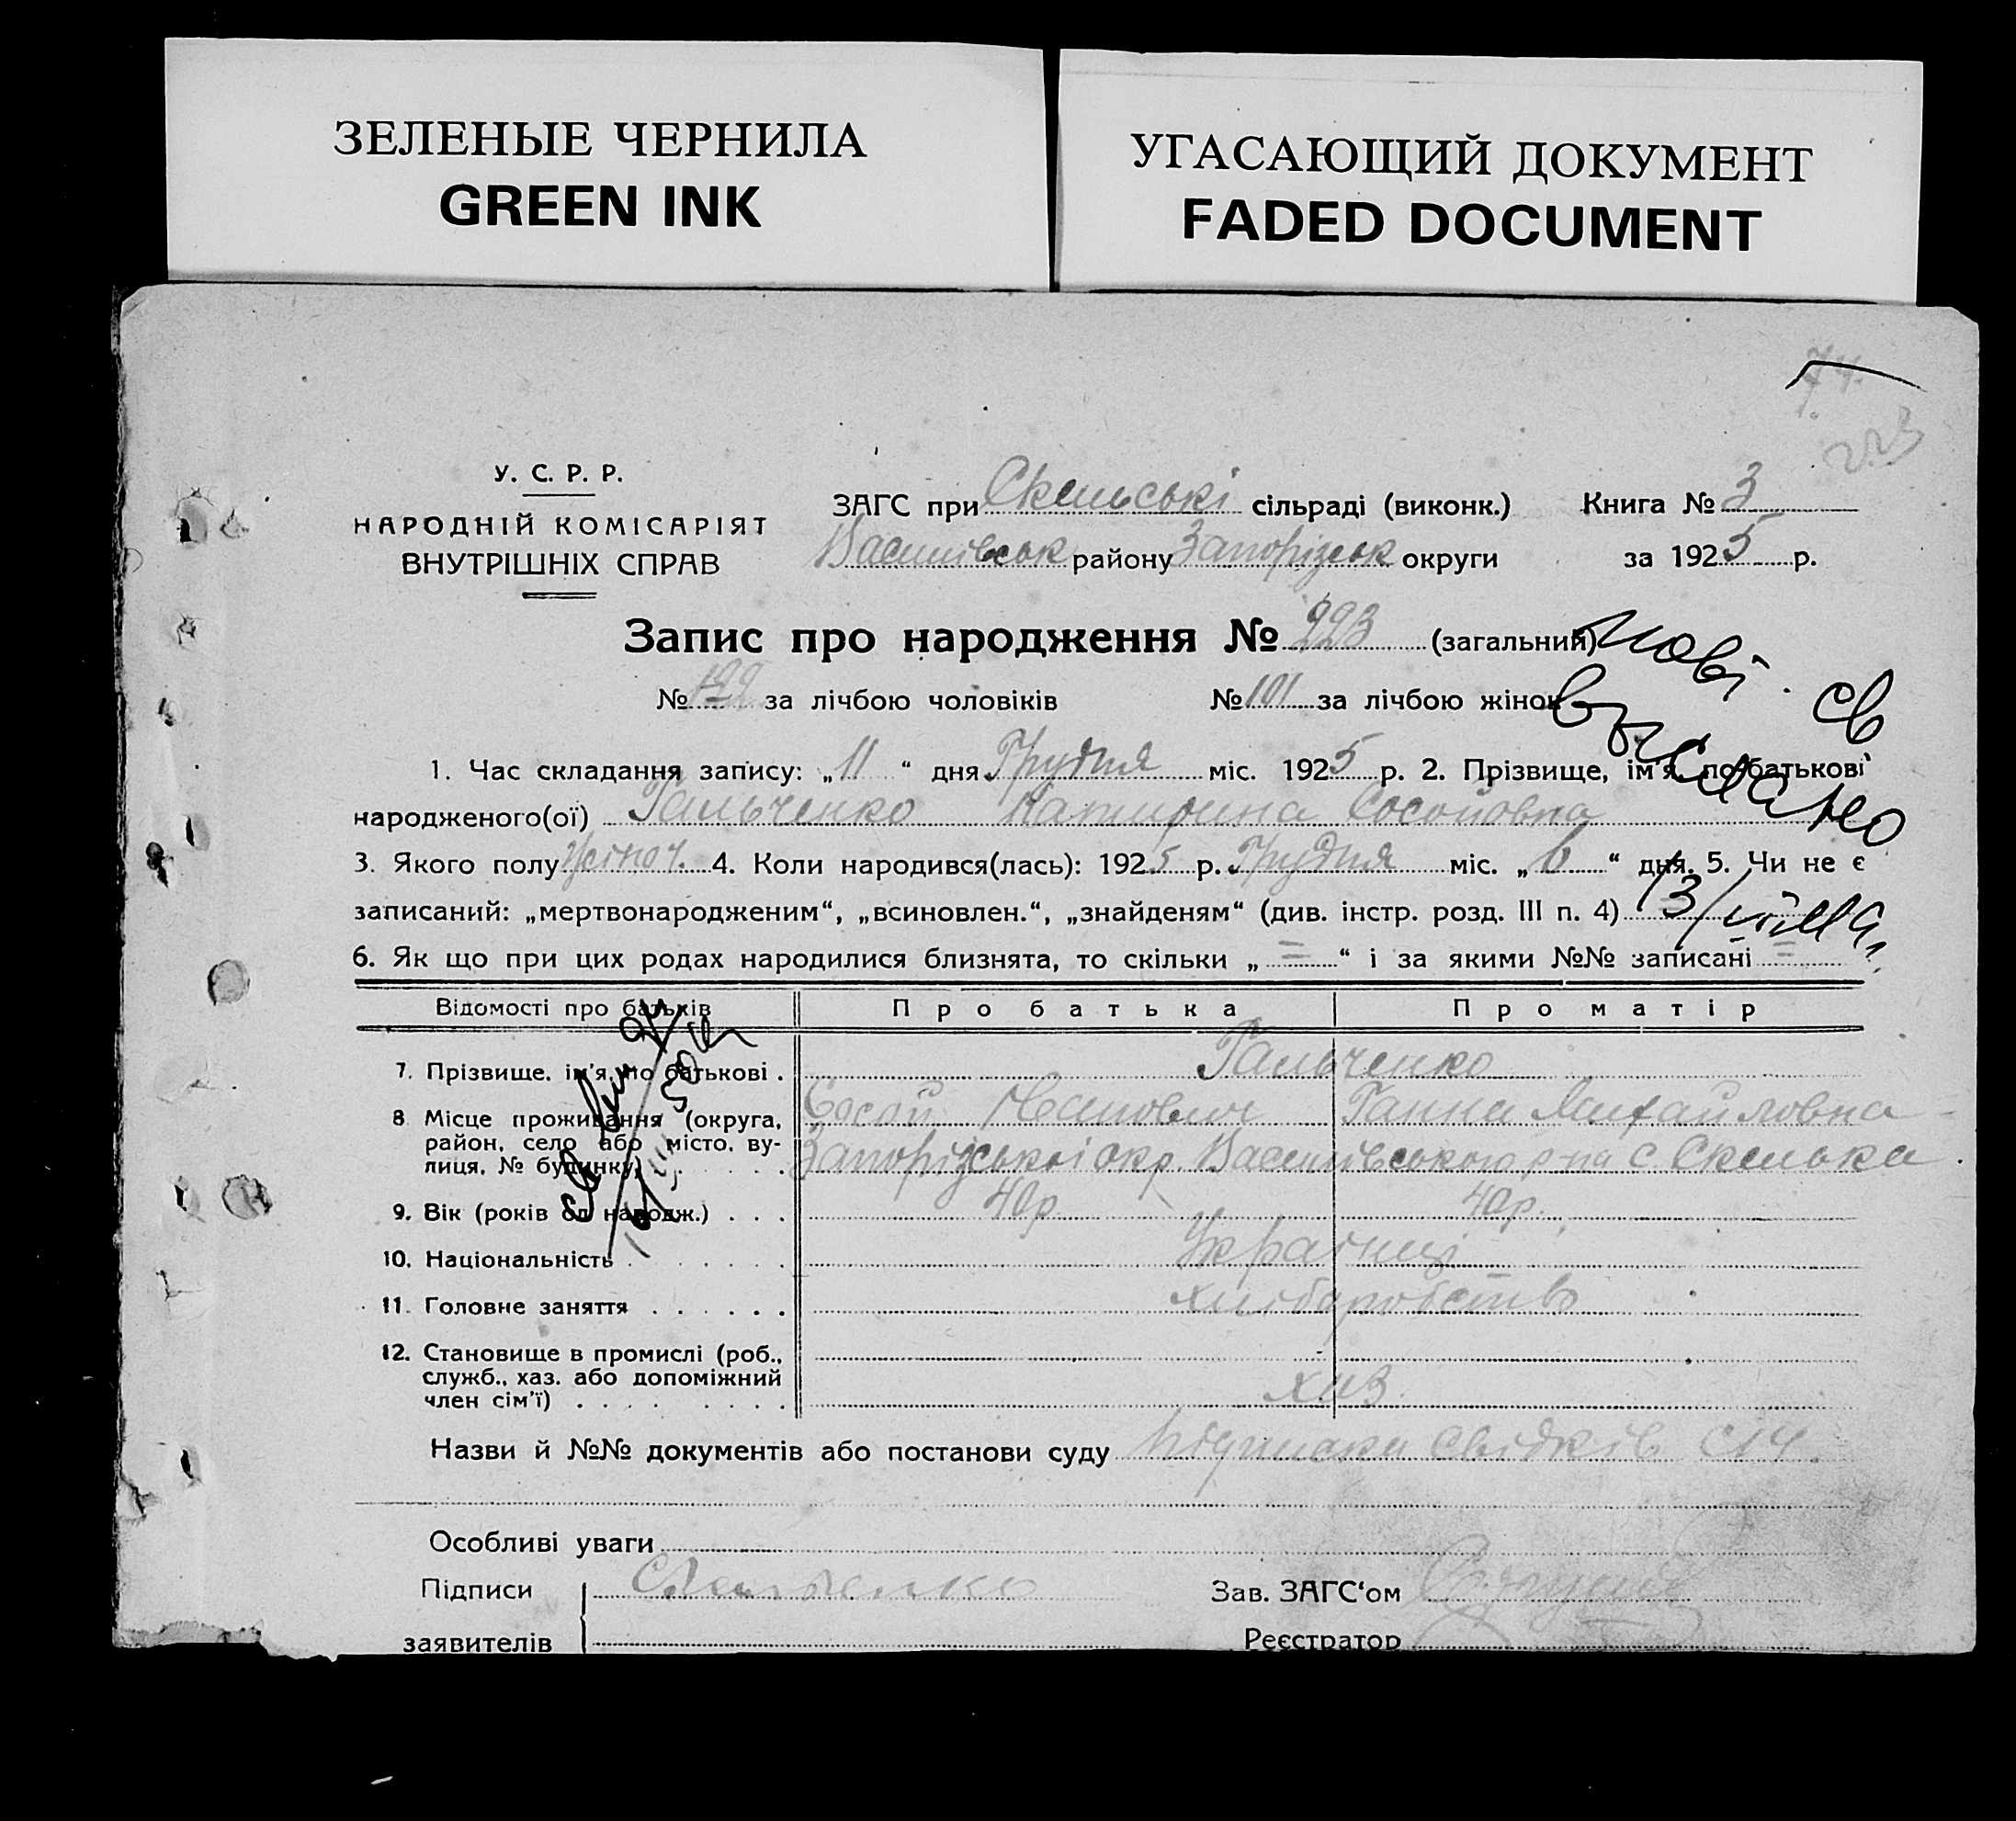 ЗЕЛЕНЫЕ ЧЕРНИЛА
GREEN INK
УГАСАЮЩИЙ ДОКУМЕНТ
FADED DOCUMENT
74.
223
У. С. Р. Р.
НАРОДНІЙ КОМІСАРІЯТ
ВНУТРІШНІХ СПРАВ
ЗАГС при Скельські сільраді (виконк.) Книга № 3
Василівськ району Запорізськ округи за 1925 р.
Запис про народження № 223 (загальний)
№ 122 за лічбою чоловіків № 101 за лічбою жінок
1. Час складання запису: „11“ дня Грудня міс. 1925 р. 2. Прізвище, ім'я, по батькові
народженого(ої) Гальченко Катирина Сосойовна
3. Якого полу жіноч. 4. Коли народився(лась): 1925 р. Грудня міс. „6“ дня. 5. Чи не є
записаний: „мертвонародженим“, „всиновлен.“, „знайденям“ (див. інстр. розд. III п. 4)
6. Як що при цих родах народилися близнята, то скільки „=“ і за якими №№ записані =
Відомості про батьків Про батька Про матір
7. Прізвище, ім'я, по батькові . Гальченко
8 Місце проживання (округа, район, село або місто, вулиця, № будинку) Сосой Іванович Ганна Михайловна
Запорізської окр. Василівського р-на с. Скелька
9. Вік (років од народж.) . . . 40 р 40 р.
10. Національність Українці
11. Головне заняття . . . . . . хліборобство
12. Становище в промислі (роб.,
служб., хаз. або допоміжний
член сім'ї) хаз.
Назви й №№ документів або постанови суду підписка свідків
Особливі уваги
Підписи Зав. ЗАГС'ом
заявителів Реєстратор
нові . св
выслано